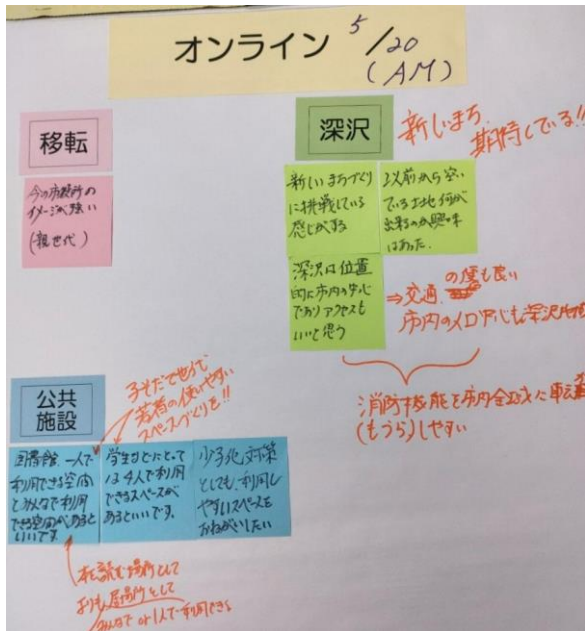 オンライン 5/20
(AM)
移転
今の市役所の
イメージが強い
(親世代)
深沢
新しいまち、
期待している!!
新しいまちづくり
に挑戦している
感じがする
以前から空い
ている土地何が
出来るのか興味
はあった.
深沢は位置
的に市内の中心
でありアクセスも
いいと思う
⇒交通の便も良い
市内の人口中心も深沢
消防機能を市内全域に
(もうら)しやすい
公共
施設
子そだて世代
若者の使いやすい
スペースづくりを!!
図書館、一人で
利用できる空間
とみんなで利用
できる空間があると
いいです
学生などにとって
は4人で利用
できるスペースが
あるといいです。
少子化対策
としても、利用し
やすいスペースを
おねがいしたい
本を読む場所として
よりも居場所として
みんなで or 1人で利用できる